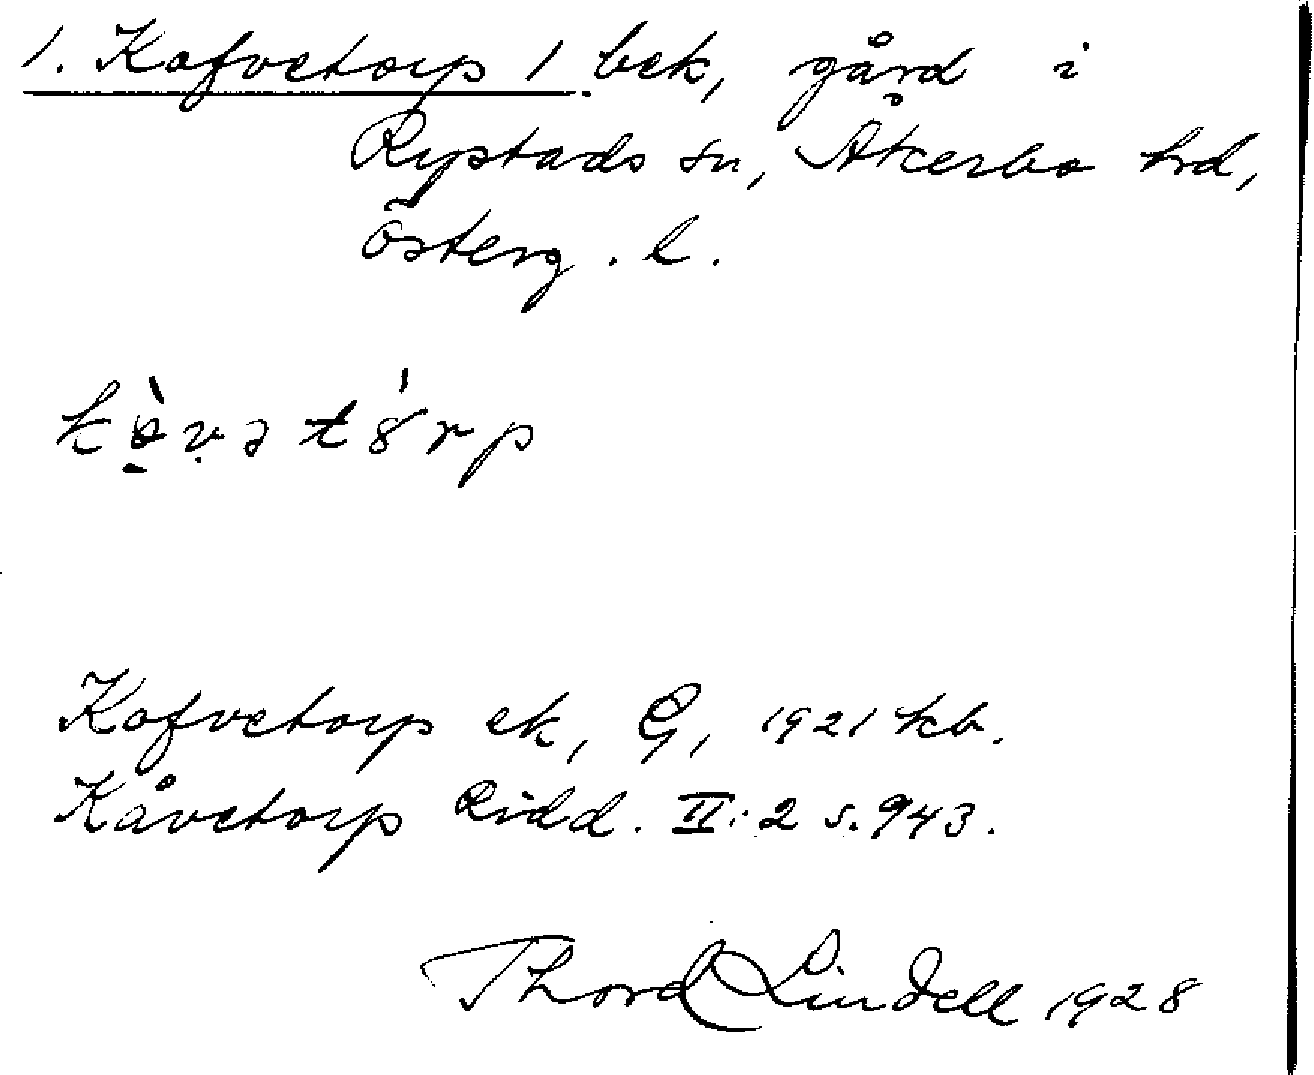 1. Kofvetorp 1 bek, gård i
Rystads sn, Åkerbo hrd,
Österg. l.
Kofvetorp ek, G, 1921 kb.
Kåvetorp Ridd. II:2 s. 943.
Thord Lindell 1928